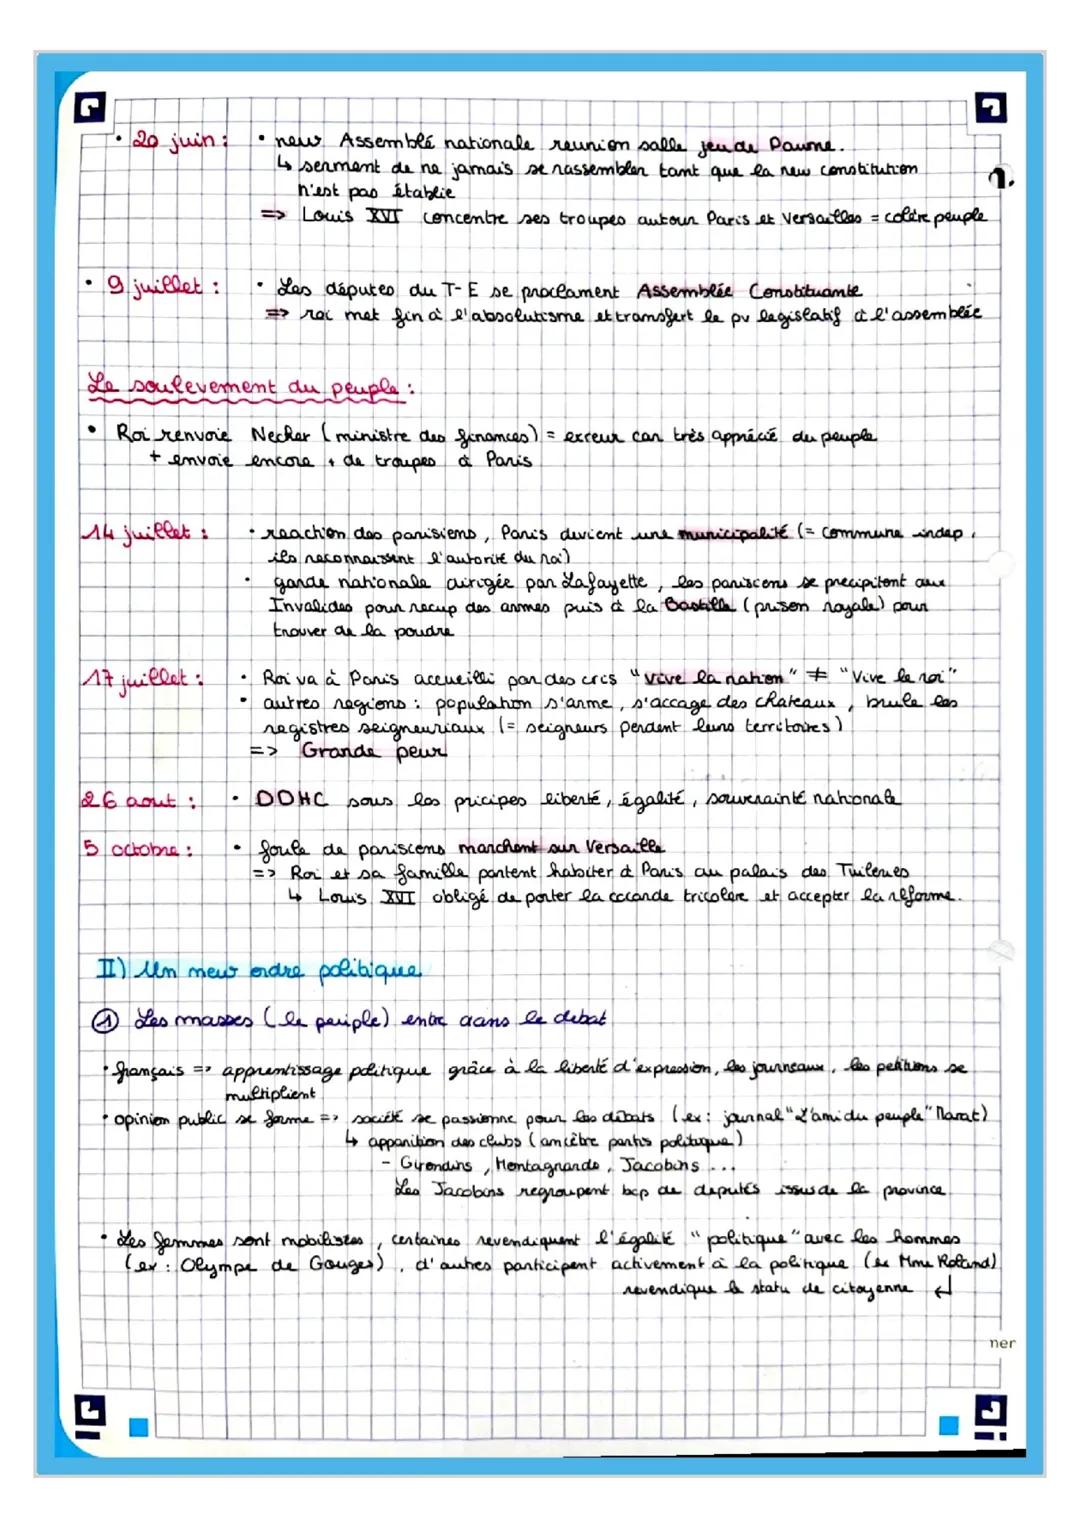 • 20 juin : • new Assemblé nationale reunion salle jeu de Paume.
↳ serment de ne jamais se rassembler tant que la new constitution
n'est pas établie
1.
=> Louis XVI concentre ses troupes autour Paris et Versailles = colère peuple
• 9 juillet : • Les députes du T-E se proclament Assemblée Constituante
=> roi met fin à l'absolutisme et transfert le pv legislatif à l'assemblée
Le soulevement du peuple :
• Roi renvoie Necker (ministre des finances) = erreur car très apprécié du peuple
+ envoie encore + de troupes à Paris
14 juillet : • reaction des parisiens, Paris devient une municipalité (= commune indep,
ils reconnaissent l'autorité du roi)
• garde nationale dirigée par Lafayette, les pariscens se precipitent aux
Invalides pour recup des armes puis à la Bastille (prison royale) pour
trouver de la poudre
17 juillet : • Roi va à Paris accueilli par des cris "vive la nation" ≠ "Vive le roi"
• autres regions : population s'arme, s'accage des chateaux, brule les
registres seigneuriaux (= seigneurs perdent leurs territoires)
=> Grande peur
26 aout : • DDHC sous les pricipes liberté, égalité, souverainté nationale
5 octobre : • foule de pariscens marchent sur Versaille
=> Roi et sa famille partent habiter à Paris au palais des Tuileries
↳ Louis XVI obligé de porter la cocarde tricolore et accepter la réforme.
II) Un new ordre politique
① Les masses (le peuple) entre dans le debat
• français => apprentissage politique grâce à la liberté d'expression, les journeaux, les petitions se
multiplient
• opinion public se forme => société se passionne pour les débats (ex : journal "L'ami du peuple" Marat)
↳ apparition des clubs (ancêtre partis politique)
- Girondins, Montagnards, Jacobins ...
Les Jacobins regroupent bcp de deputés issus de la province
• Les femmes sont mobilistes, certaines revendiquent l'égalité "politique" avec les hommes
(ex : Olympe de Gouges), d'autres participent activement à la politique (ex Mme Roland)
revendique le statu de citoyenne ↵
ner